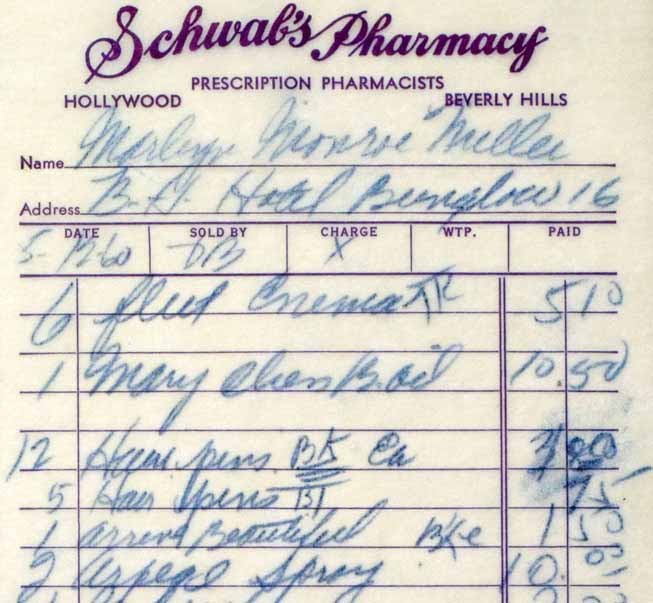 Schwab's Pharmacy
PRESCRIPTION PHARMACISTS
HOLLYWOOD BEVERLY HILLS
Name Marlyn Monroe Miller
Address B.H. Hotel Bunglow 16
DATE SOLD BY CHARGE WTP. PAID
5-12-60 DB X
6 fleet Enema 5 10
1 Mary Chess B. oil 10 50
12 Hair pins BK Ca 3 00
5 Hair pins BT 75
1 arrive Beautiful 1 50
2 Arpege Spray 10 00